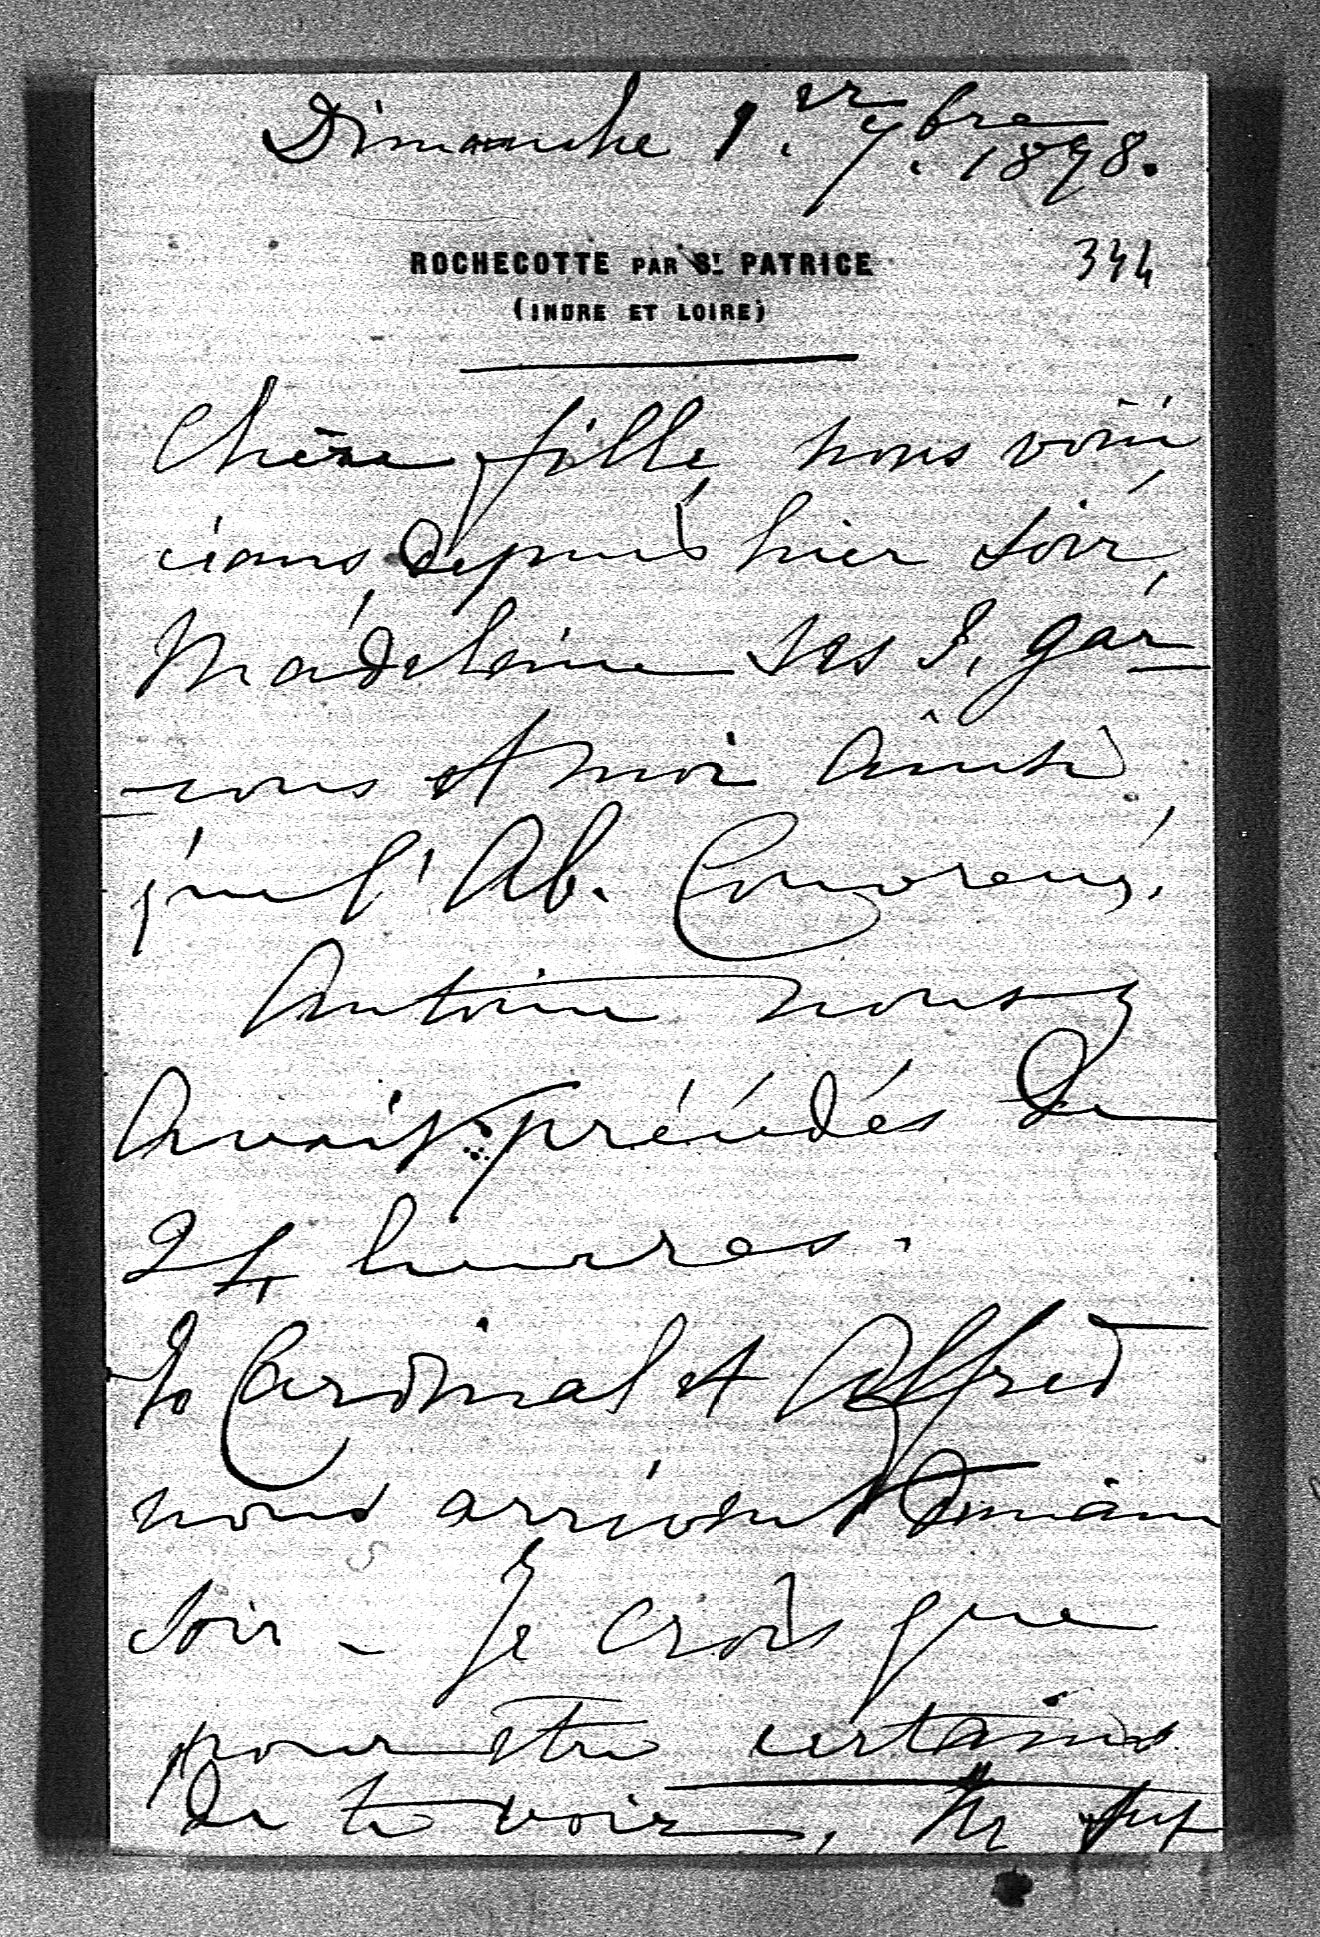 Dimanche 1.er 7.bre 1878.
ROCHECOTTE PAR St. PATRICE
344
(INDRE ET LOIRE)
Chère fille, nous voici
icians depuis hier soir,
Madeleine ses 2, gar-
-cons et moi ainsi
que l'Ab. Couvreux,
Antoine nous
avait précédés de
24 heures.
Le Cardinal et Alfred
nous arrivent Demain
soir - Je crois que
pour être certains
de te voir,